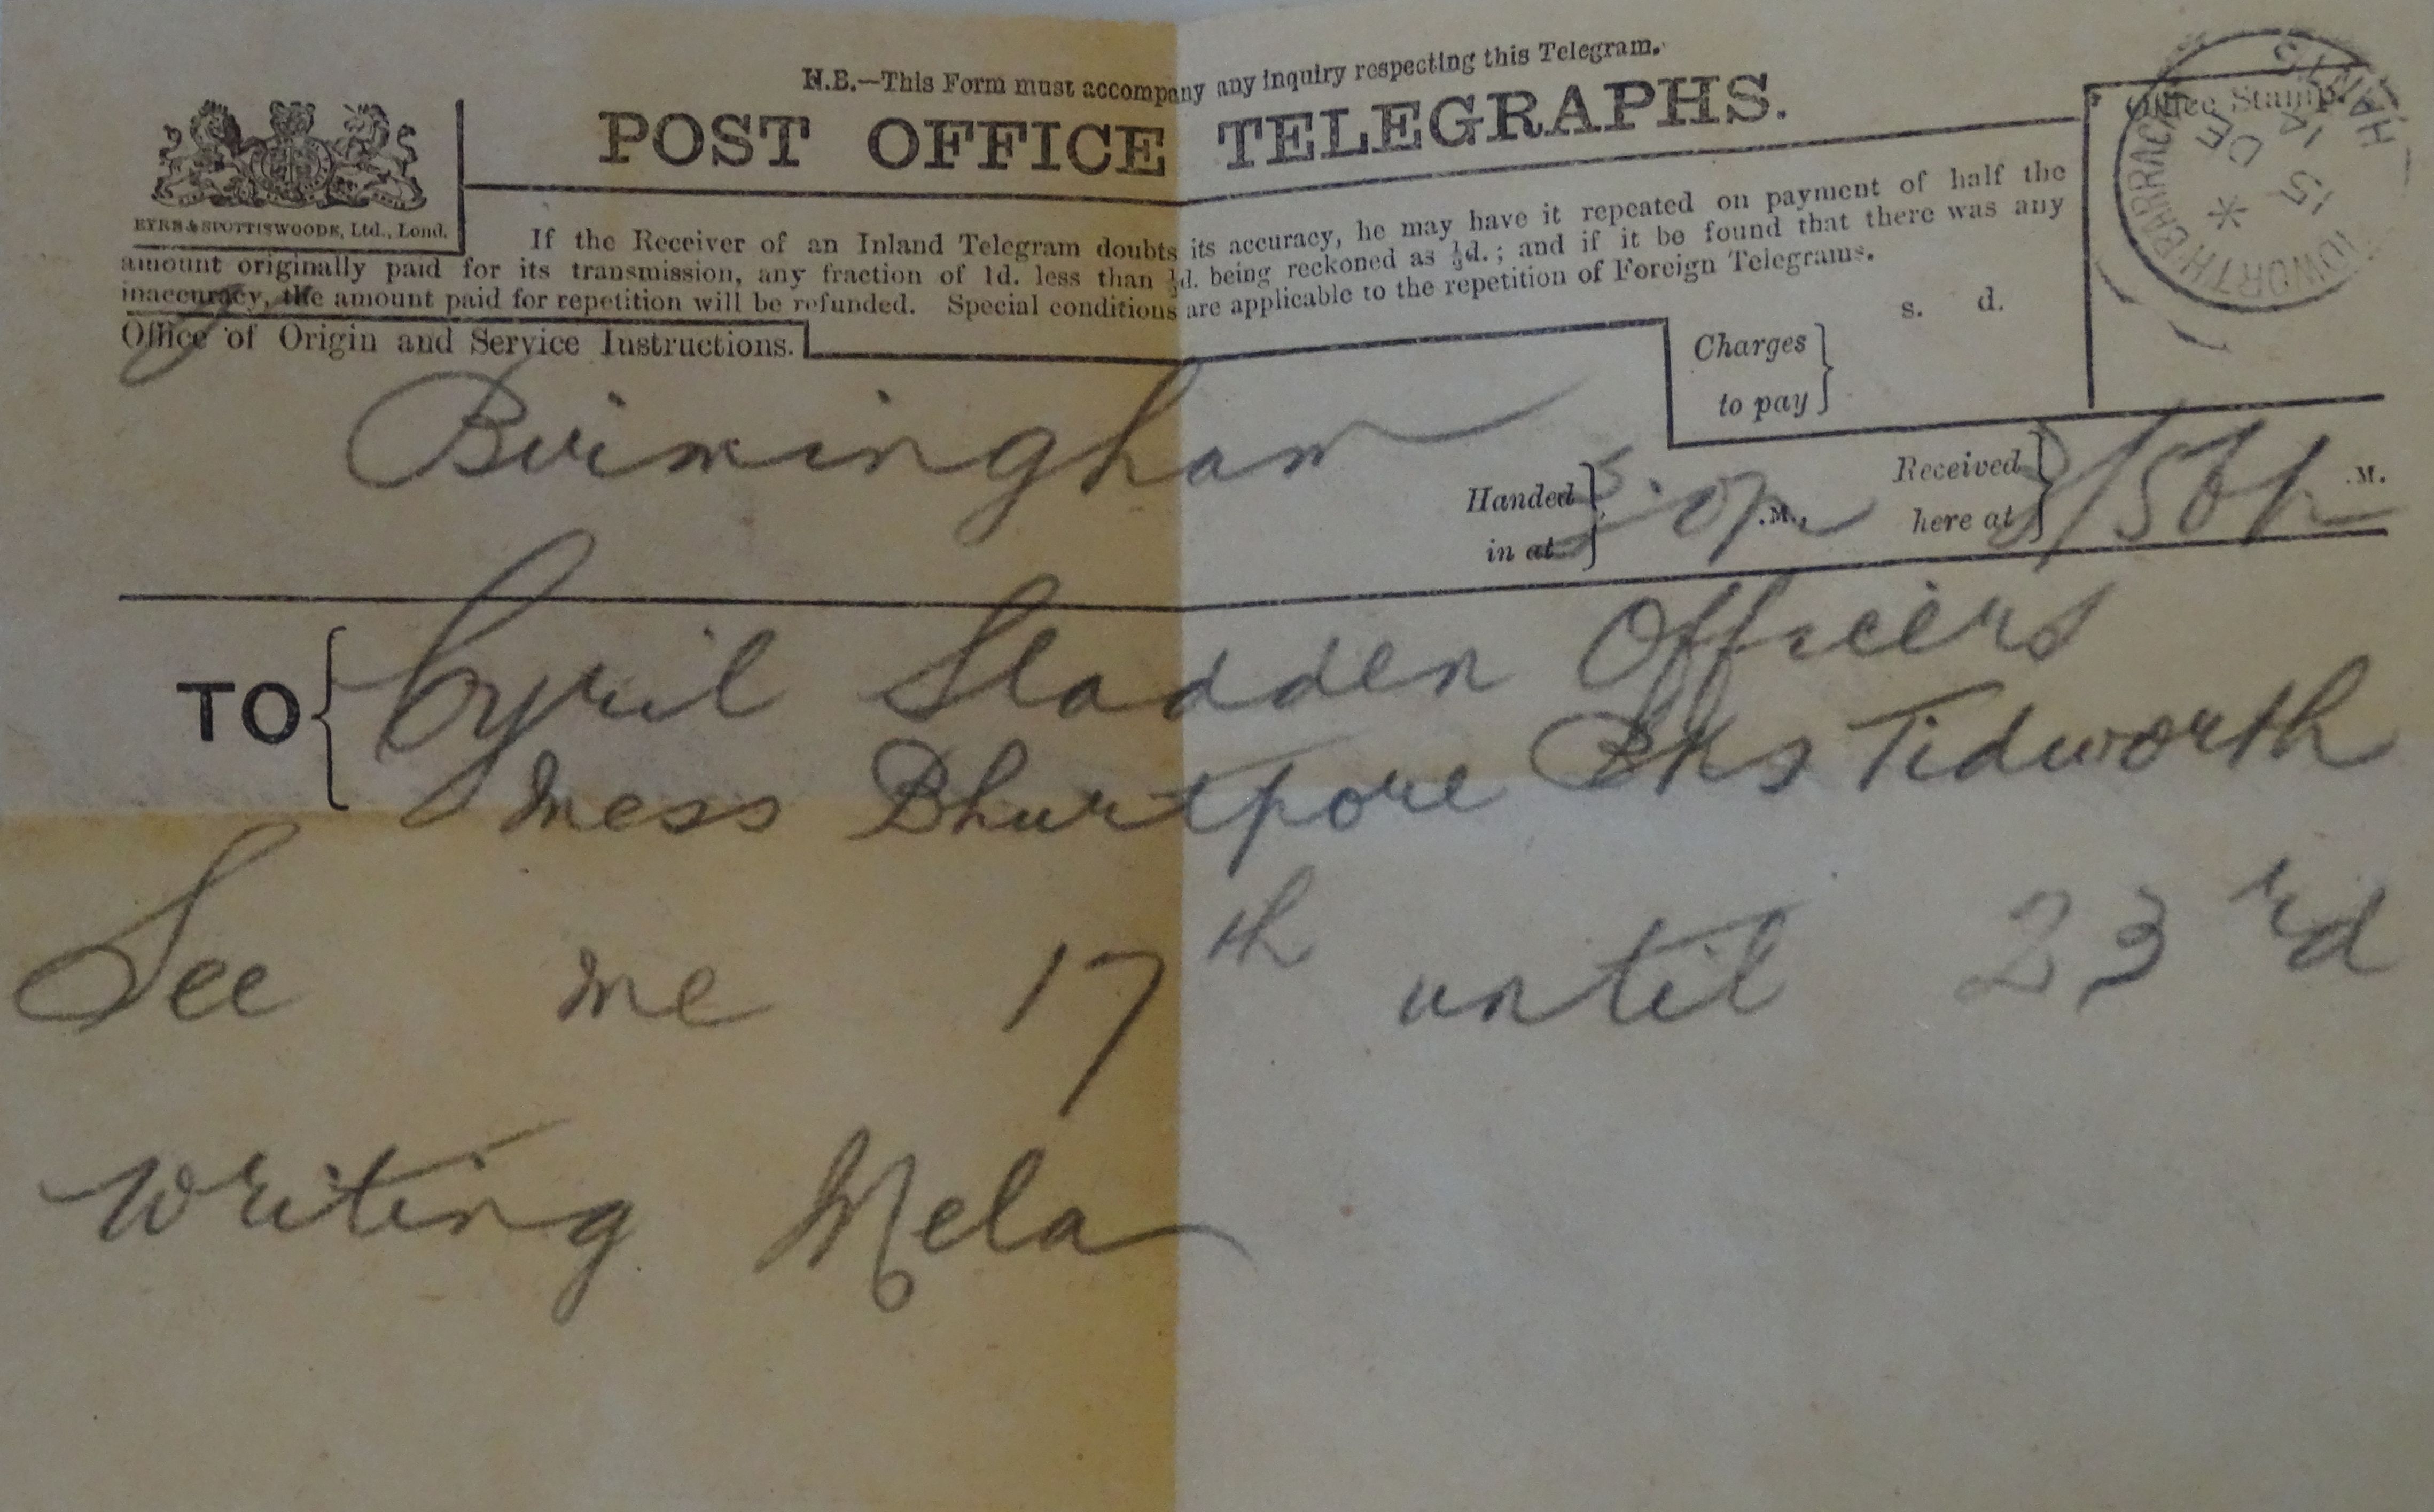 N.B.—This Form must accompany any inquiry respecting this Telegram.
POST OFFICE TELEGRAPHS.
EYRE & SPOTTISWOODE, Ltd., Lond.
Office Stamp.
TIDWORTH BARRACKS HANTS
DE 15
If the Receiver of an Inland Telegram doubts its accuracy, he may have it repeated on payment of half the
amount originally paid for its transmission, any fraction of 1d. less than ½d. being reckoned as ½d.; and if it be found that there was any
inaccuracy, the amount paid for repetition will be refunded. Special conditions are applicable to the repetition of Foreign Telegrams.
Office of Origin and Service Instructions.
s. d.
Charges
to pay
Birmingham
Handed
in at
M.,
Received
here at
M.
TO
Cyril Sladden Officers
Mess Bhurtpore Bks Tidworth
See me 17th until 23rd
writing Mela